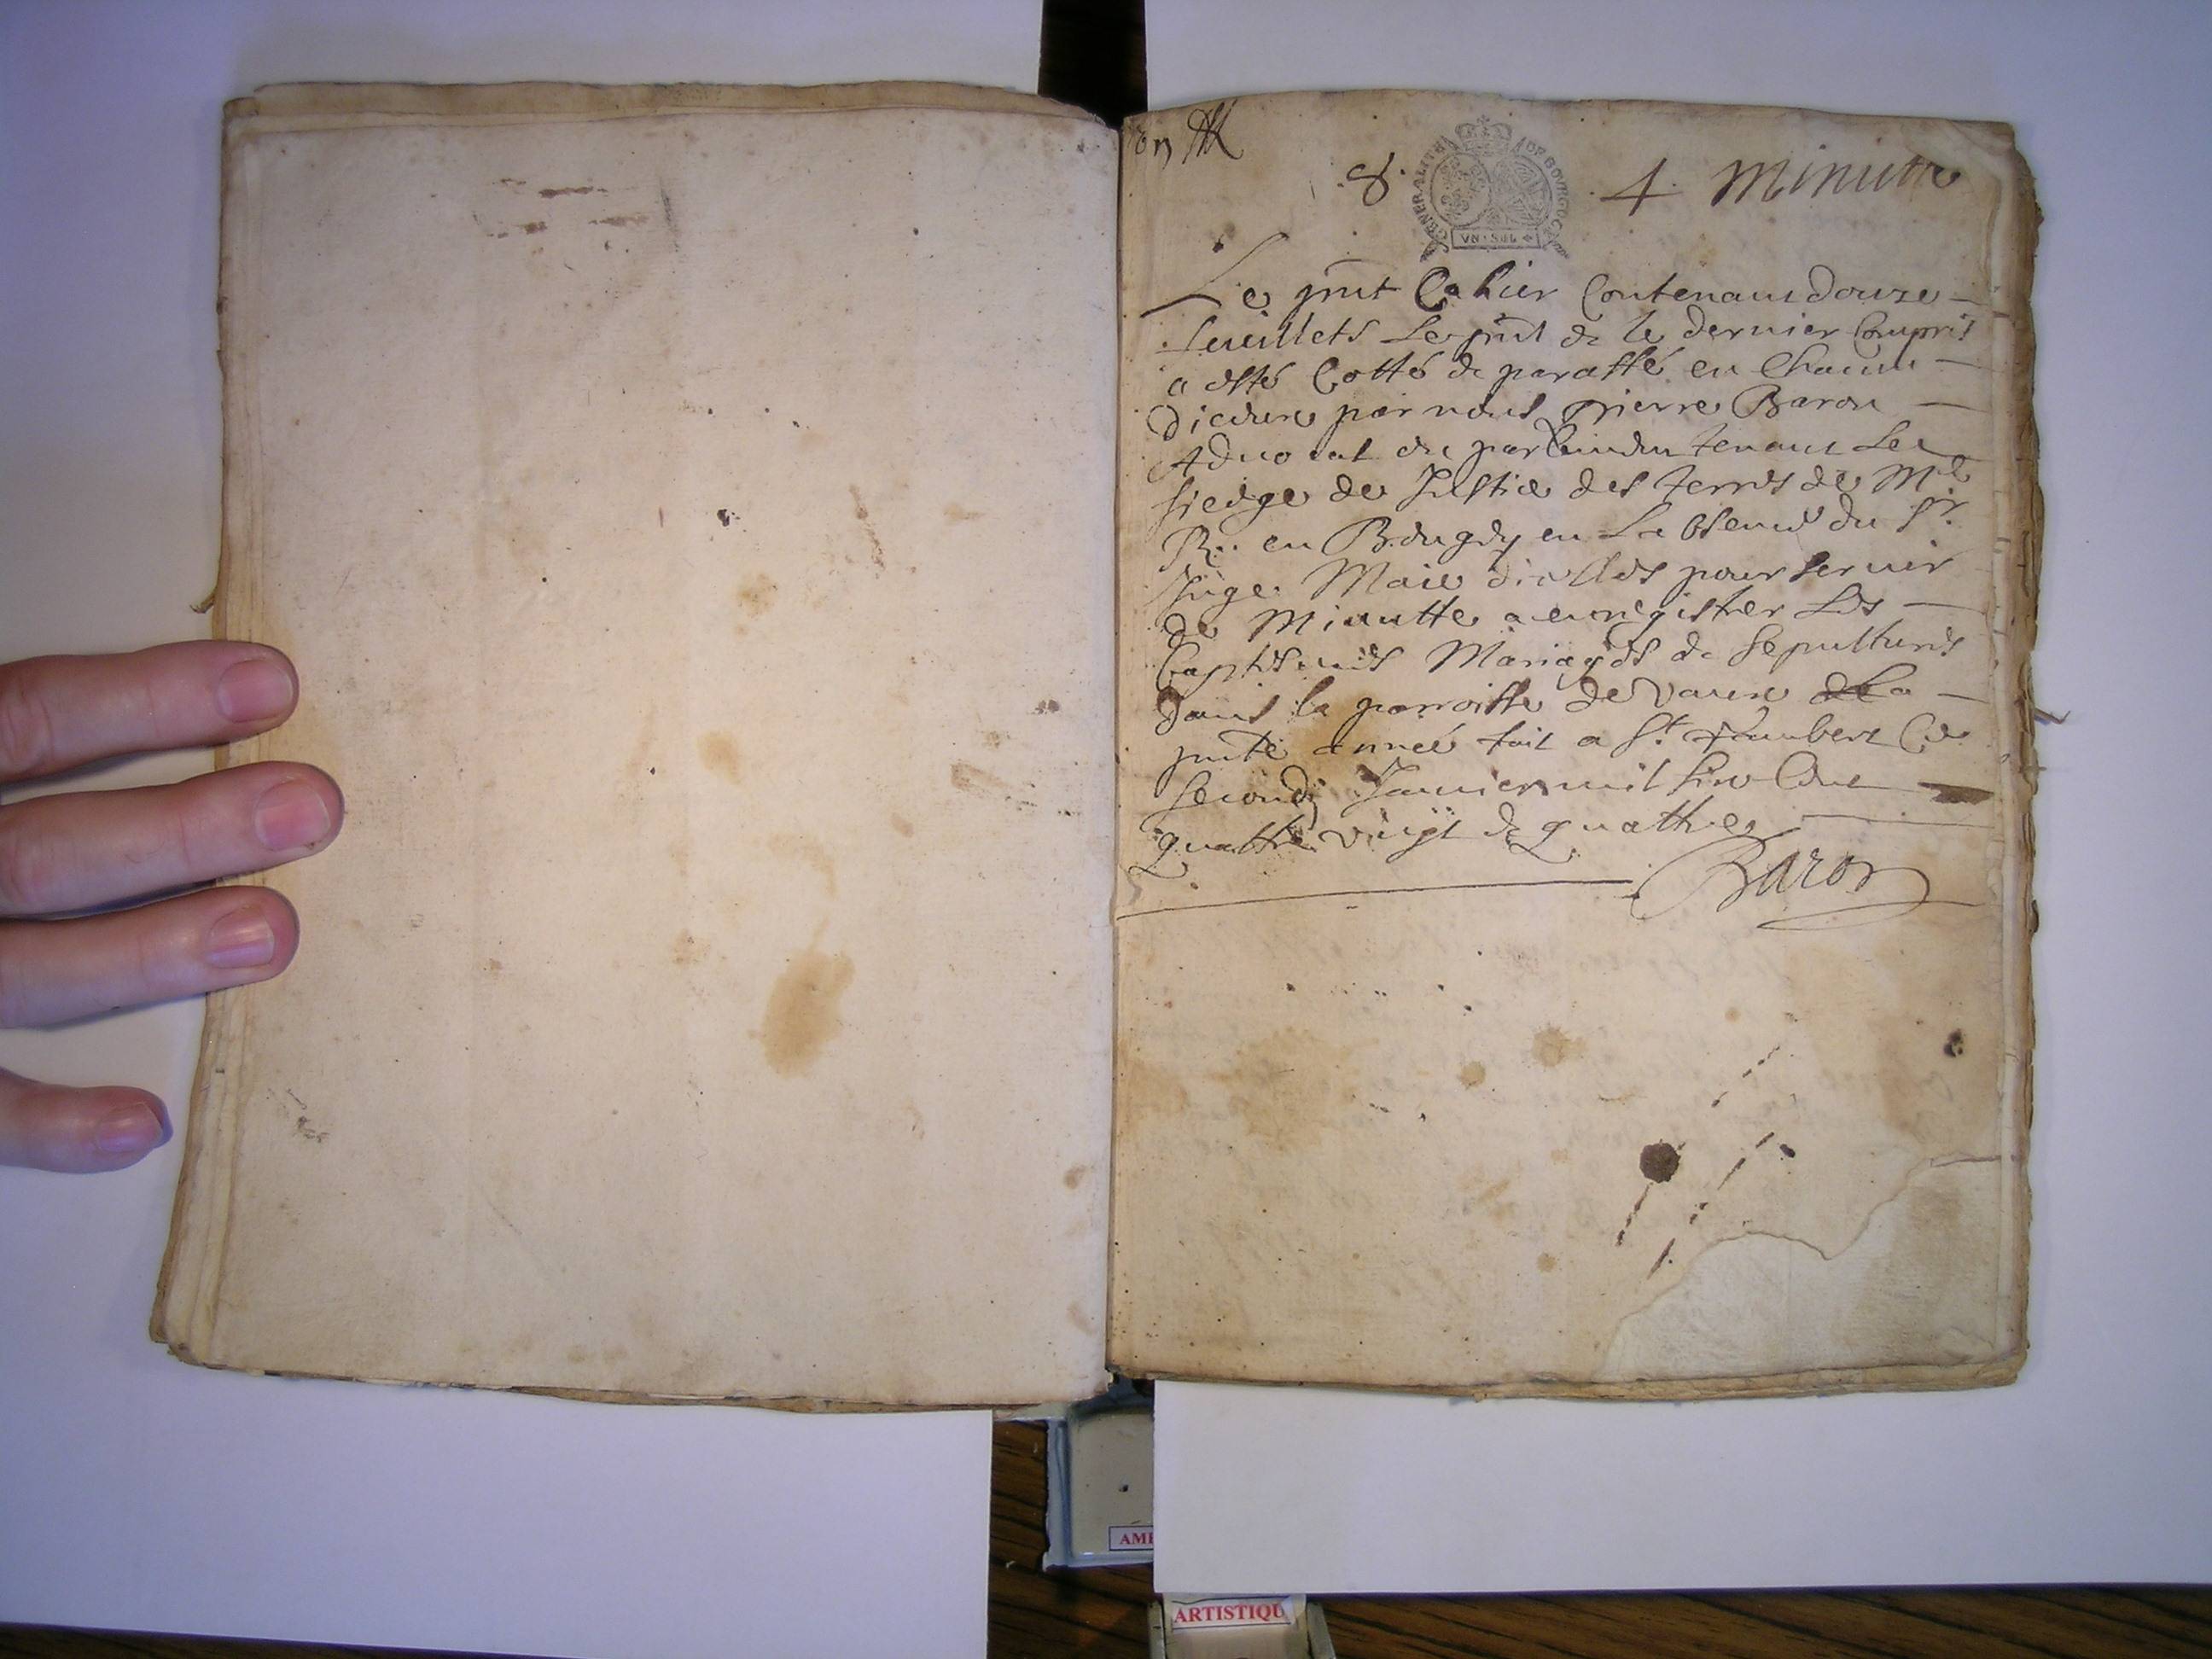 8.
4. Minutte
GENERALITE DE BOURGOGNE
VN SOL
Le pnt Cahier Contenant douze
feuillets Le pnt & le dernier Compris
a esté Cotté & paraffé en Chacun
Diceux par nous pierre Baron
Aduocat en parlemen tenant Le
siedge de Justice des terres de
R.. en Bougey en Labsence du Sr
Juge Maie dicelles pour seruir
de Minutte a enregistrer Les
baptesmes Mariages & sepultures
dans la parroisse de Vaux La
pnte année fait a St Rambert Ce
second Januier mil six Cent
quattre vingt & quattre
Baron
AME
ARTISTIQU